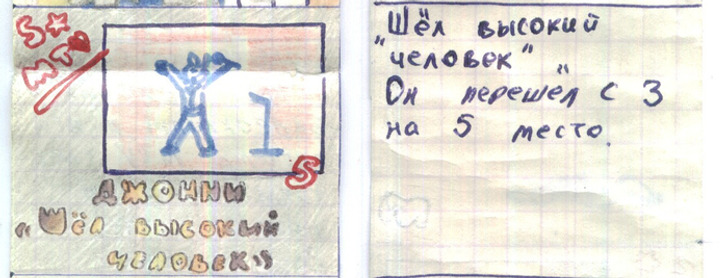 5*
МТ
1
5
ДЖОННИ
„Шёл высокий
человек"
Шёл высокий
„человек"
Он перешёл с 3
на 5 место.